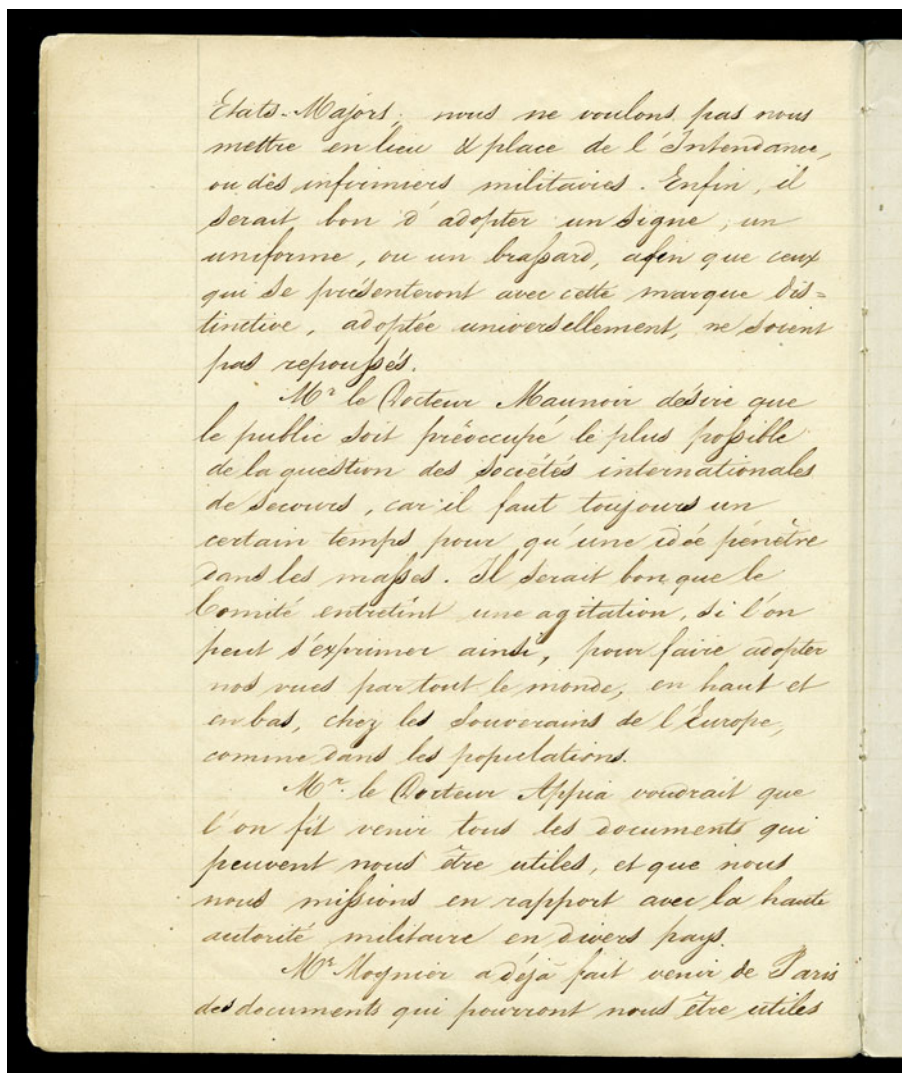 Etats-Majors; nous ne voulons pas nous
mettre en lieu & place de l'Intendance,
ou des infirmiers militaires. Enfin, il
serait bon d'adopter un signe, un
uniforme, ou un brassard, afin que ceux
qui se présenteront avec cette marque dis=
tinctive, adoptée universellement, ne soient
pas repoussés.
Mr le Docteur Maunoir désire que
le public soit préoccupé le plus possible
de la question des sociétés internationales
de secours, car il faut toujours un
certain temps pour qu'une idée pénètre
dans les masses. Il serait bon que le
Comité entretînt une agitation, si l'on
peut s'exprimer ainsi, pour faire adopter
nos vues par tout le monde, en haut et
en bas, chez les Souverains de l'Europe,
comme dans les populations.
Mr. le Docteur Appia voudrait que
l'on fit venir tous les documents qui
peuvent nous être utiles, et que nous
nous missions en rapport avec la haute
autorité militaire en divers pays.
Mr Moynier a déjà fait venir de Paris
des documents qui pourront nous être utiles